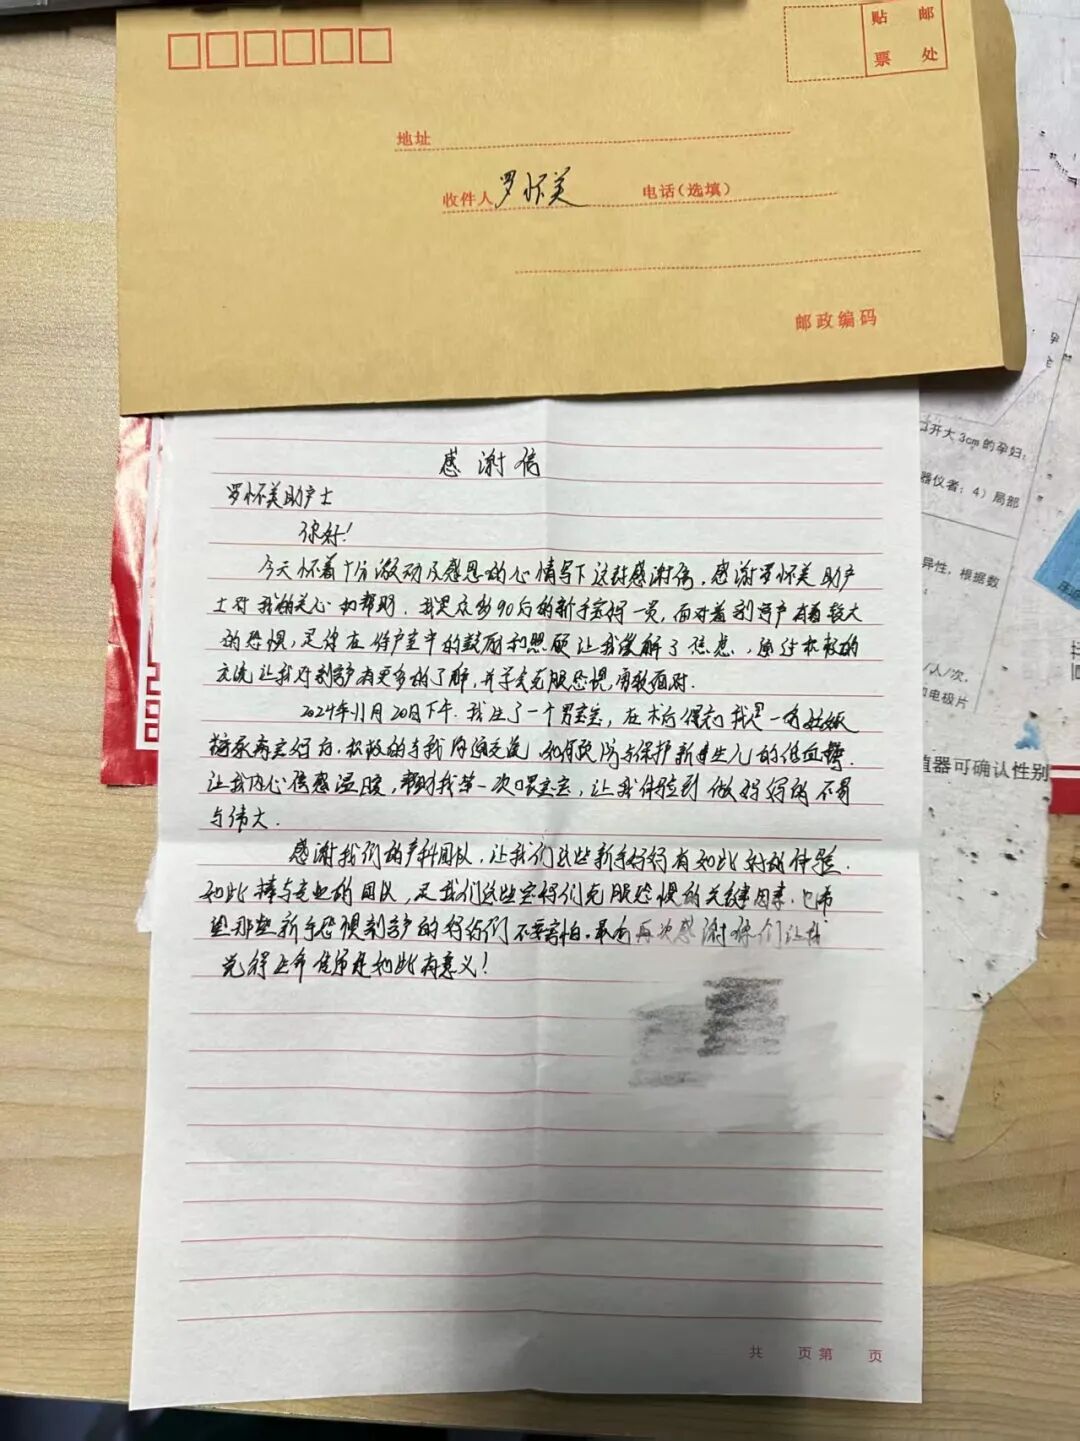 贴 邮
票 处
地址
收件人 罗怀美 电话(选填)
邮政编码
感谢信
罗怀美助产士
你好!
今天怀着十分激动及感恩的心情写下这封感谢信,感谢罗怀美助产
士对我的关心和帮助。我是众多90后的新手宝妈一员,面对着剖宫产有着较大
的恐惧,是你在待产室中的鼓励和照顾让我缓解了焦虑,通过轻松的
交流让我对剖宫产有更多的了解,并学会克服恐惧,勇敢面对。
2024年11月20日下午,我生了一个男宝宝,在术后得知我是一名妊娠
糖尿病宝妈后,轻松的与我沟通交流,如何预防与保护新生儿的低血糖,
让我内心倍感温暖,帮助我第一次喂宝宝,让我体验到做妈妈的不易
与伟大。
感谢我们的产科团队,让我们这些新手妈妈有如此好的体验。
如此棒与专业的团队,是我们这些宝妈们克服恐惧的关键因素,也希
望那些新手恐惧剖宫产的妈妈们不要害怕。最后再次感谢你们让我
觉得这个 是如此有意义!
共 页 第 页
开大3cm的孕妇;
器仪者;4)局部
异性,根据数
/人/次,
电极片
值器可确认性别